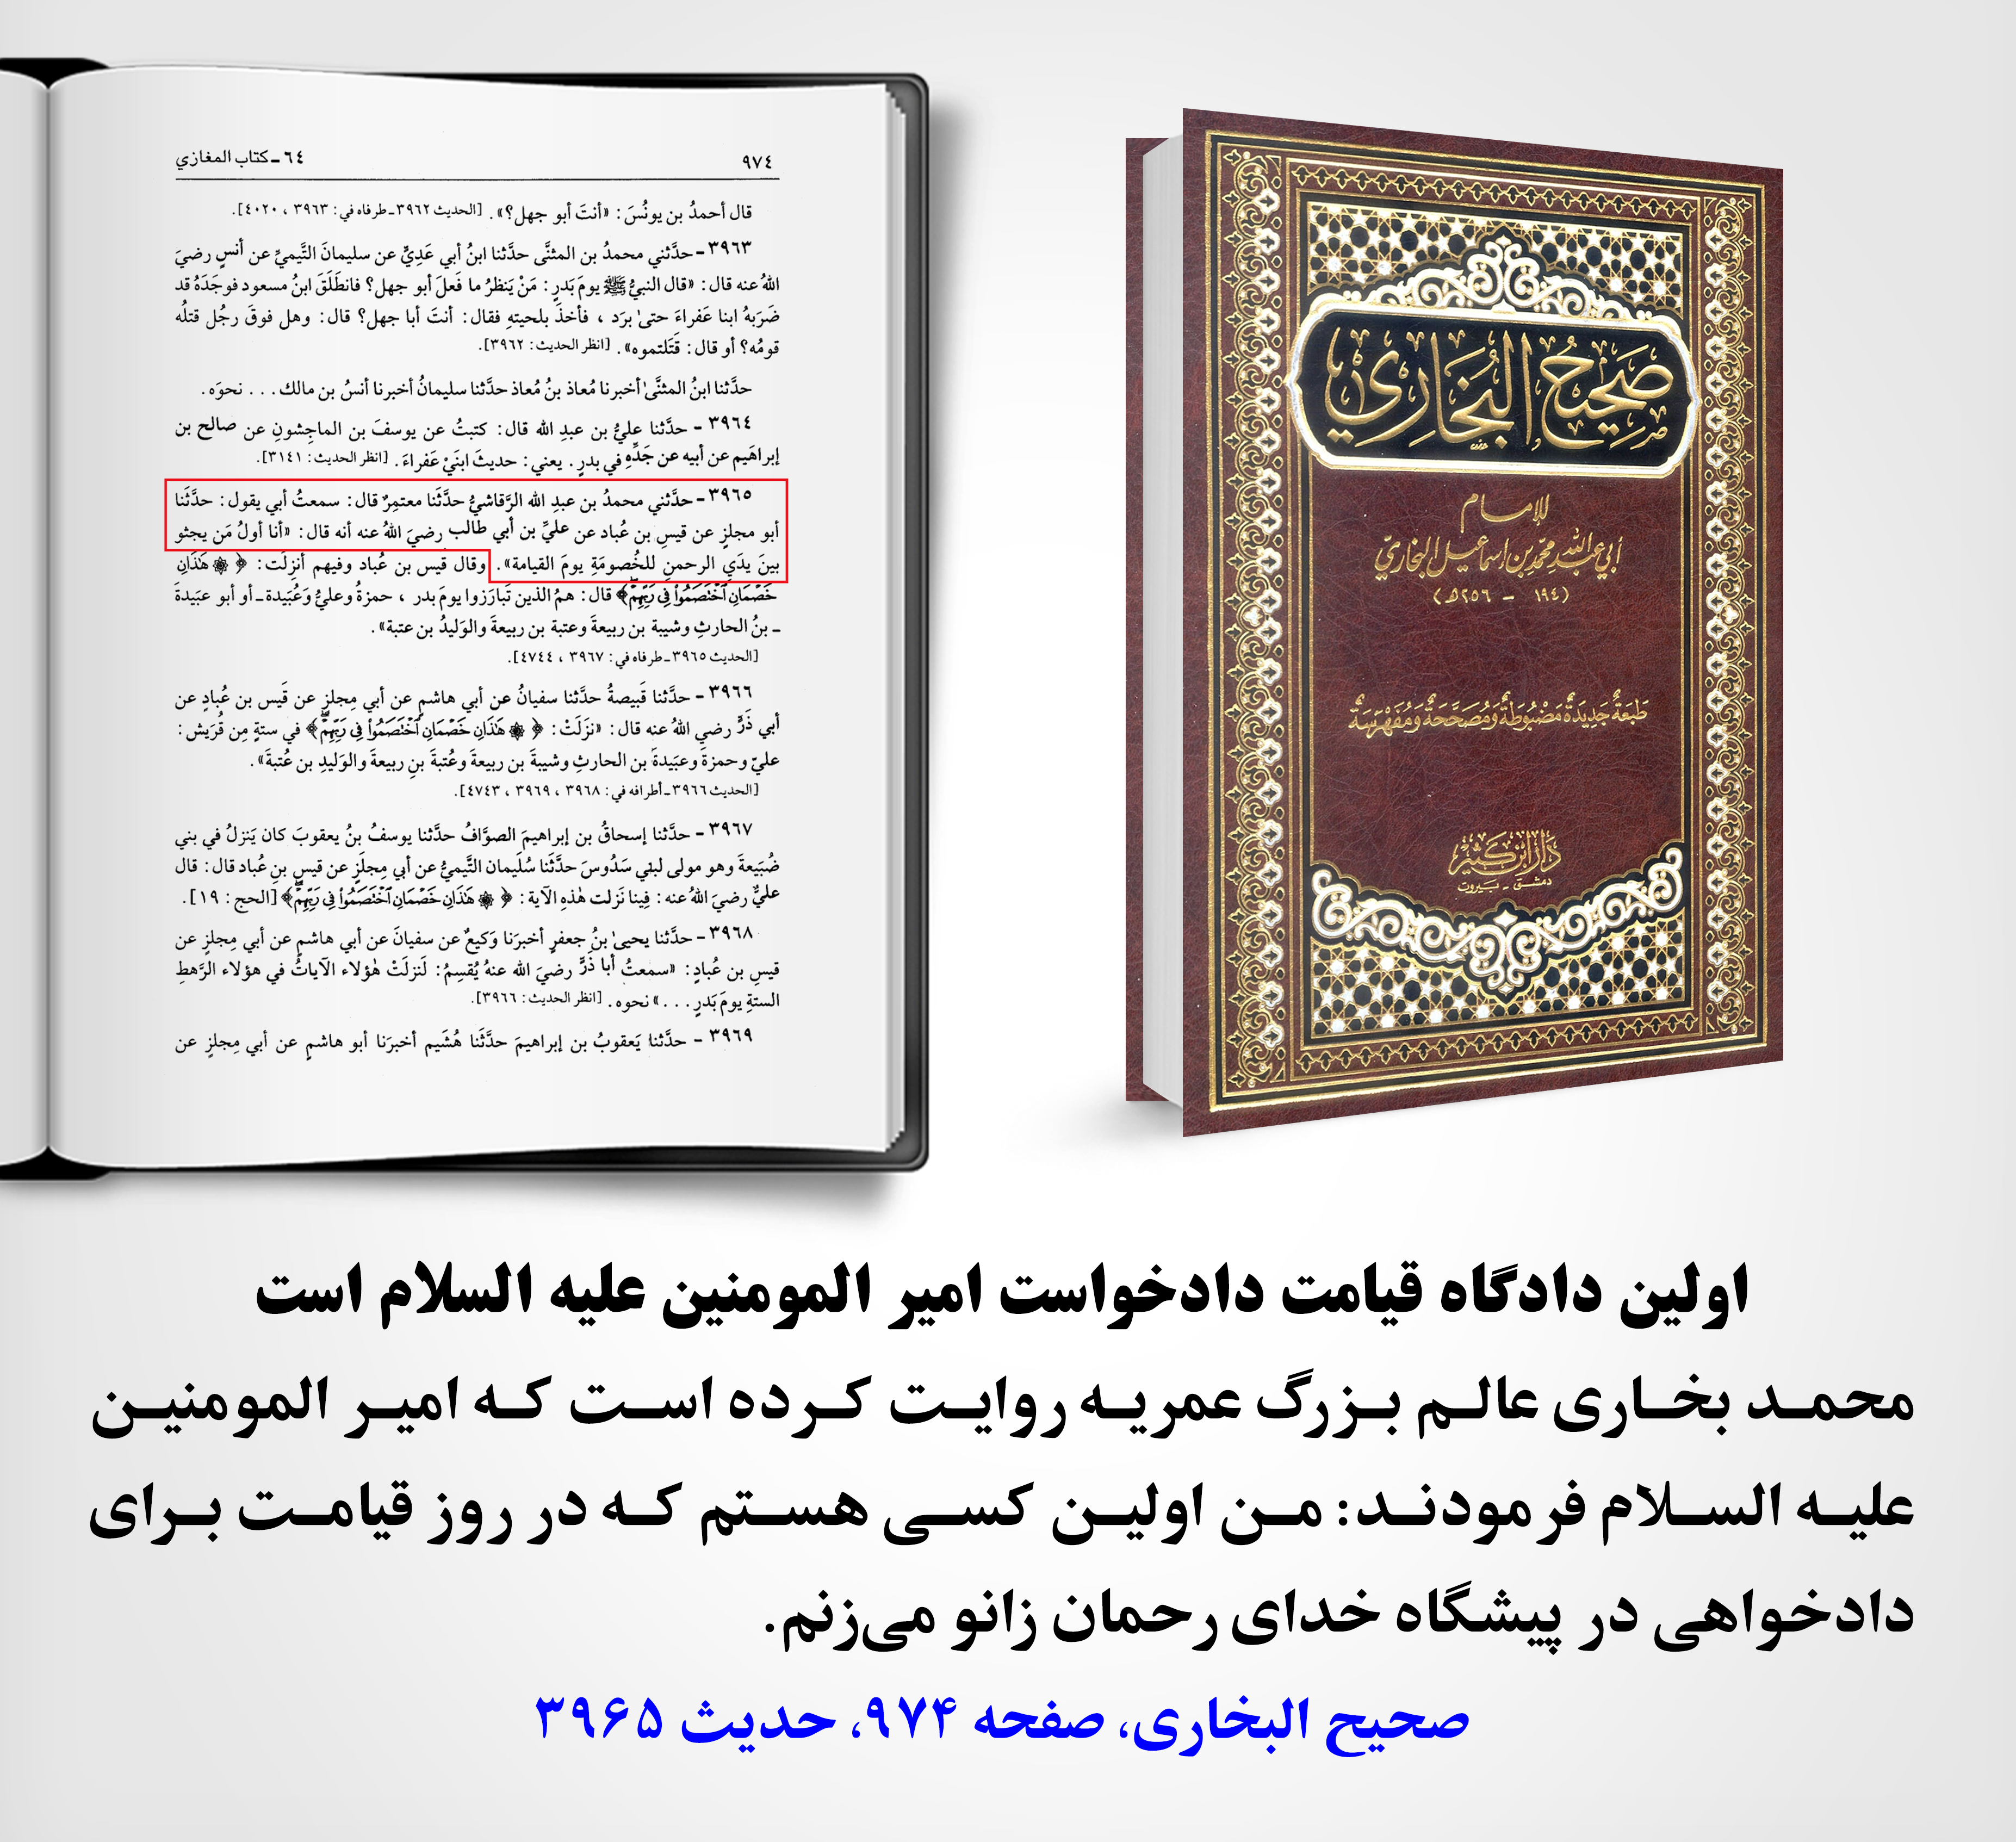 ٩٧٤
٦٤ ـ كتاب المغازي
قال أحمدُ بن يونُسَ: «أنتَ أبو جهل؟». [الحديث ٣٩٦٢ ـ طرفاه في: ٣٩٦٣ ، ٤٠٢٠].
٣٩٦٣ ـ حدَّثني محمدُ بن المثنَّى حدَّثنا ابنُ أبي عَدِيٍّ عن سليمانَ التَّيميِّ عن أنسٍ رضيَ
اللهُ عنه قال: «قال النبيُّ ﷺ يومَ بَدرٍ: مَنْ يَنظرُ ما فَعلَ أبو جهل؟ فانطَلَقَ ابنُ مسعود فوجَدَهُ قد
ضَرَبهُ ابنا عَفراءَ حتىٰ برَد ، فأخذَ بلحيتهِ فقال: أنتَ أبا جهل؟ قال: وهل فوقَ رجُل قتلُه
قومُه؟ أو قال: قَتَلتموه». [انظر الحديث: ٣٩٦٢].
حدَّثنا ابنُ المثنَّىٰ أخبرنا مُعاذ بنُ مُعاذ حدَّثنا سليمانُ أخبرنا أنسُ بن مالك. . . نحوَه.
٣٩٦٤ ـ حدَّثنا عليُّ بن عبدِ الله قال: كتبتُ عن يوسفَ بن الماجِشونِ عن صالح بن
إبراهَيم عن أبيه عن جَدِّهِ في بدرٍ. يعني: حديثَ ابنَيْ عَفراءَ. [انظر الحديث: ٣١٤١].
٣٩٦٥ ـ حدَّثني محمدُ بن عبدِ الله الرَّقاشيُّ حدَّثَنا معتمِرٌ قال: سمعتُ أبي يقول: حدَّثَنا
أبو مجلزٍ عن قيسِ بن عُباد عن عليِّ بن أبي طالب رضيَ اللهُ عنه أنه قال: «أنا أولُ مَن يجثو
بينَ يدَيِ الرحمنِ للخُصومَةِ يومَ القيامة». وقال قَيس بن عُباد وفيهم أنزِلَت: ﴿ ۞ هَٰذَانِ
خَصْمَانِ ٱخْتَصَمُوا۟ فِى رَبِّهِمْ﴾ قال: همُ الذين تَبارَزوا يومَ بدر ، حمزةُ وعليُّ وَعُبَيدة ـ أو أبو عبَيدةَ
ـ بنُ الحارثِ وشيبة بن ربيعةَ وعتبة بن ربيعةَ والوَليدُ بن عتبة».
[الحديث ٣٩٦٥ ـ طرفاه في: ٣٩٦٧ ، ٤٧٤٤].
٣٩٦٦ ـ حدَّثنا قَبيصةُ حدَّثنا سفيانُ عن أبي هاشمٍ عن أبي مِجلزٍ عن قَيس بن عُبادٍ عن
أبي ذَرٍّ رضي اللهُ عنه قال: «نزَلَتْ: ﴿ ۞ هَٰذَانِ خَصْمَانِ ٱخْتَصَمُوا۟ فِى رَبِّهِمْ﴾ في ستةٍ مِن قُرَيش:
عليّ وحمزةَ وعبَيدةَ بن الحارثِ وشيبةَ بن ربيعةَ وعُتبةَ بنِ ربيعةَ والوَليدِ بن عُتبةَ».
[الحديث ٣٩٦٦ ـ أطرافه في: ٣٩٦٨ ، ٣٩٦٩ ، ٤٧٤٣].
٣٩٦٧ ـ حدَّثنا إسحاقُ بن إبراهيمَ الصوَّافُ حدَّثنا يوسفُ بنُ يعقوبَ كان يَنزلُ في بني
ضُبَيعةَ وهو مولى لبني سَدُوسَ حدَّثَنا سُلَيمان التَّيميُّ عن أبي مِجلَزٍ عن قيسِ بنِ عُباد قال: قال
عليٌّ رضيَ اللهُ عنه: فِينا نَزلت هٰذهِ الآية: ﴿ ۞ هَٰذَانِ خَصْمَانِ ٱخْتَصَمُوا۟ فِى رَبِّهِمْ﴾ [الحج: ١٩].
٣٩٦٨ ـ حدَّثنا يحيىٰ بنُ جعفرٍ أخبرَنا وَكيعٌ عن سفيانَ عن أبي هاشمٍ عن أبي مِجلزٍ عن
قيسِ بن عُبادٍ: «سمعتُ أبا ذَرٍّ رضيَ الله عنهُ يُقسِمُ: لَنزلَتْ هٰؤلاء الآياتُ في هؤلاء الرَّهطِ
الستةِ يومَ بَدرٍ. . .» نحوه. [انظر الحديث: ٣٩٦٦].
٣٩٦٩ ـ حدَّثنا يَعقوبُ بن إبراهيمَ حدَّثَنا هُشَيم أخبرَنا أبو هاشمٍ عن أبي مِجلزٍ عن
صَحِيحُ البُخَارِيّ
للإمام
أبي عبد الله محمّد بن إسماعيل البخاريّ
(١٩٤ - ٢٥٦هـ)
طَبعَةٌ جَدِيدَةٌ مَضْبُوطَةٌ وَمُصَحَّحَةٌ وَمُفَهْرَسَةٌ
دَارُ ابْن كَثِيْر
دمشق - بيروت
اولین دادگاه قیامت دادخواست امیر المومنین علیه السلام است
محمد بخاری عالم بزرگ عمریه روایت کرده است که امیر المومنین
علیه السلام فرمودند: من اولین کسی هستم که در روز قیامت برای
دادخواهی در پیشگاه خدای رحمان زانو می‌زنم.
صحیح البخاری، صفحه ۹۷۴، حدیث ۳۹۶۵